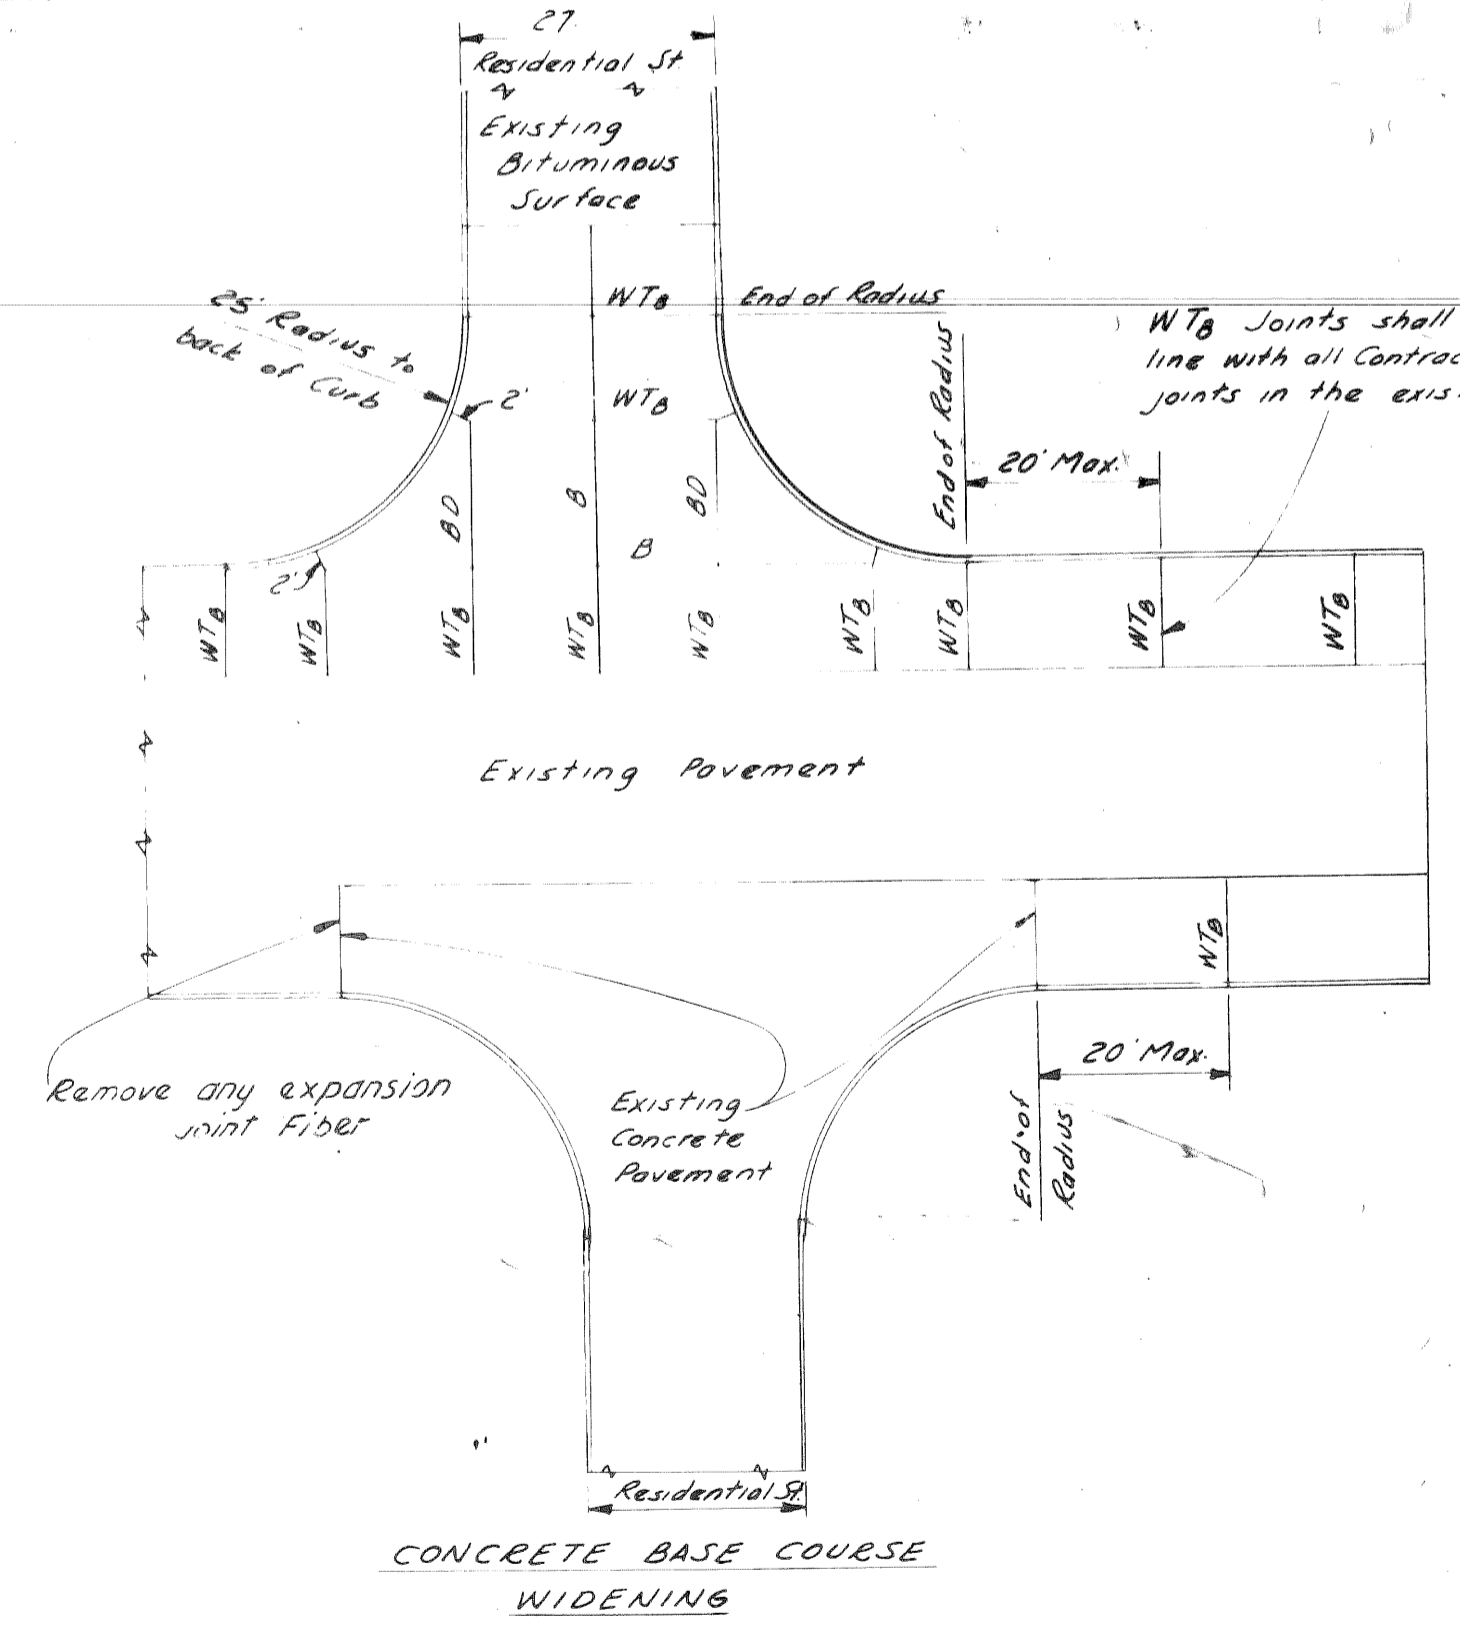 27.
Residential St.
Existing
Bituminous
Surface
25' Radius to
back of Curb
2'
WTB
End of Radius
WTB
End of Radius
WTB Joints shall
line with all Contrac
joints in the exis
20' Max.
BD
B
BD
B
2'
WTB
WTB
WTB
WTB
WTB
WTB
WTB
WTB
WTB
Existing Pavement
WTB
20' Max.
Remove any expansion
joint Fiber
Existing
Concrete
Pavement
End of
Radius
Residential St.
CONCRETE BASE COURSE
WIDENING